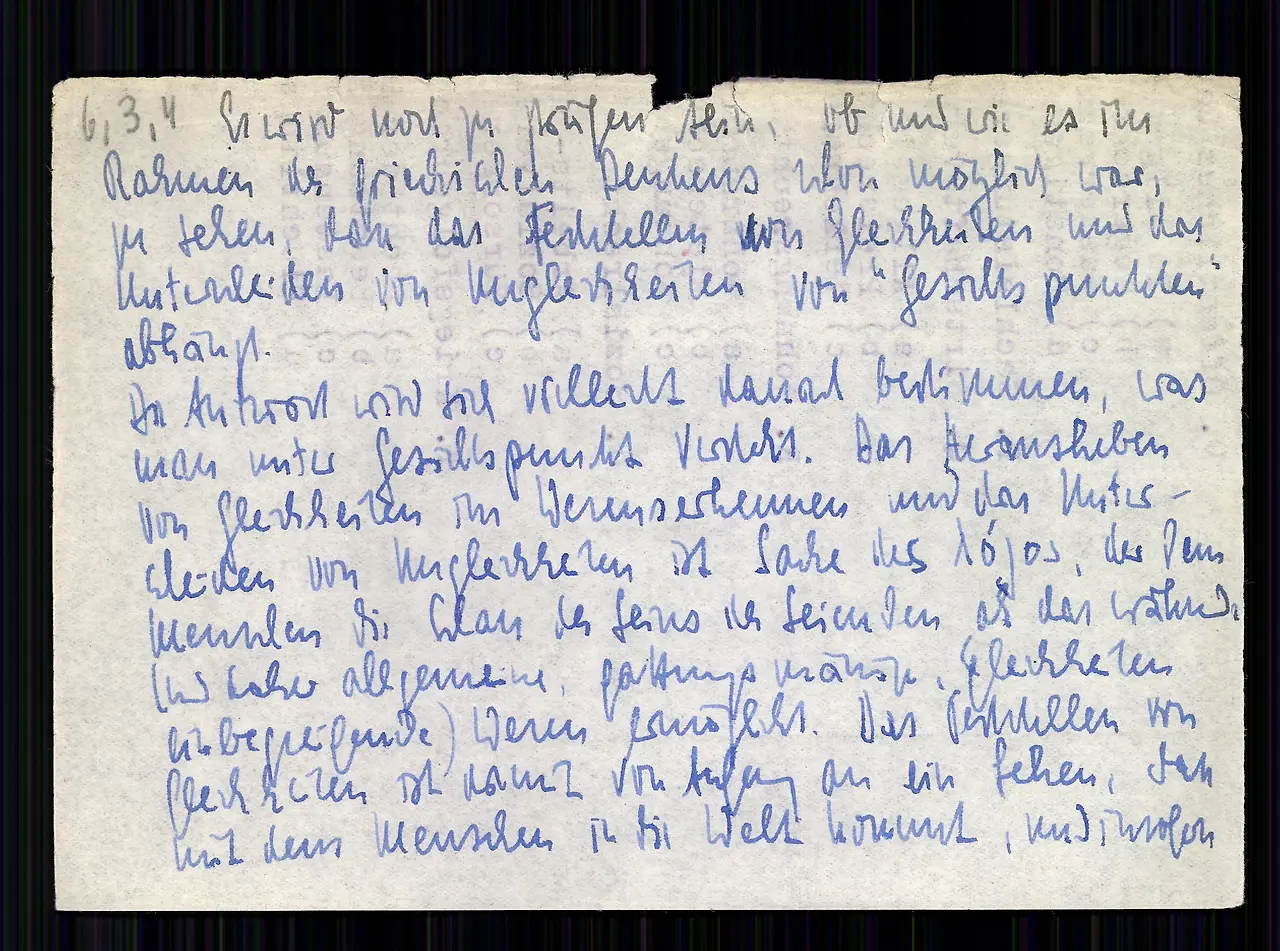 6,3,4 Es wird noch zu prüfen sein, ob und wie es im
Rahmen des griechischen Denkens schon möglich war,
zu sehen, dass das Feststellen von Gleichheiten und das
Unterscheiden von Ungleichheiten von "Gesichtspunkten"
abhängt.
Die Antwort wird sich vielleicht danach bestimmen, was
man unter Gesichtspunkt versteht. Das Herausheben
von Gleichheiten im Wesenserkennen und das Unter-
scheiden von Ungleichheiten ist Sache des λόγος, der dem
Menschen die Schau des Seins des Seienden als das während
(und daher allgemeine, gattungsmäßige, Gleichheiten
einbegreifende) Wesen ermöglicht. Das Feststellen von
Gleichheiten ist damit von Anfang an ein Sehen, das
mit dem Menschen in die Welt kommt, und insofern